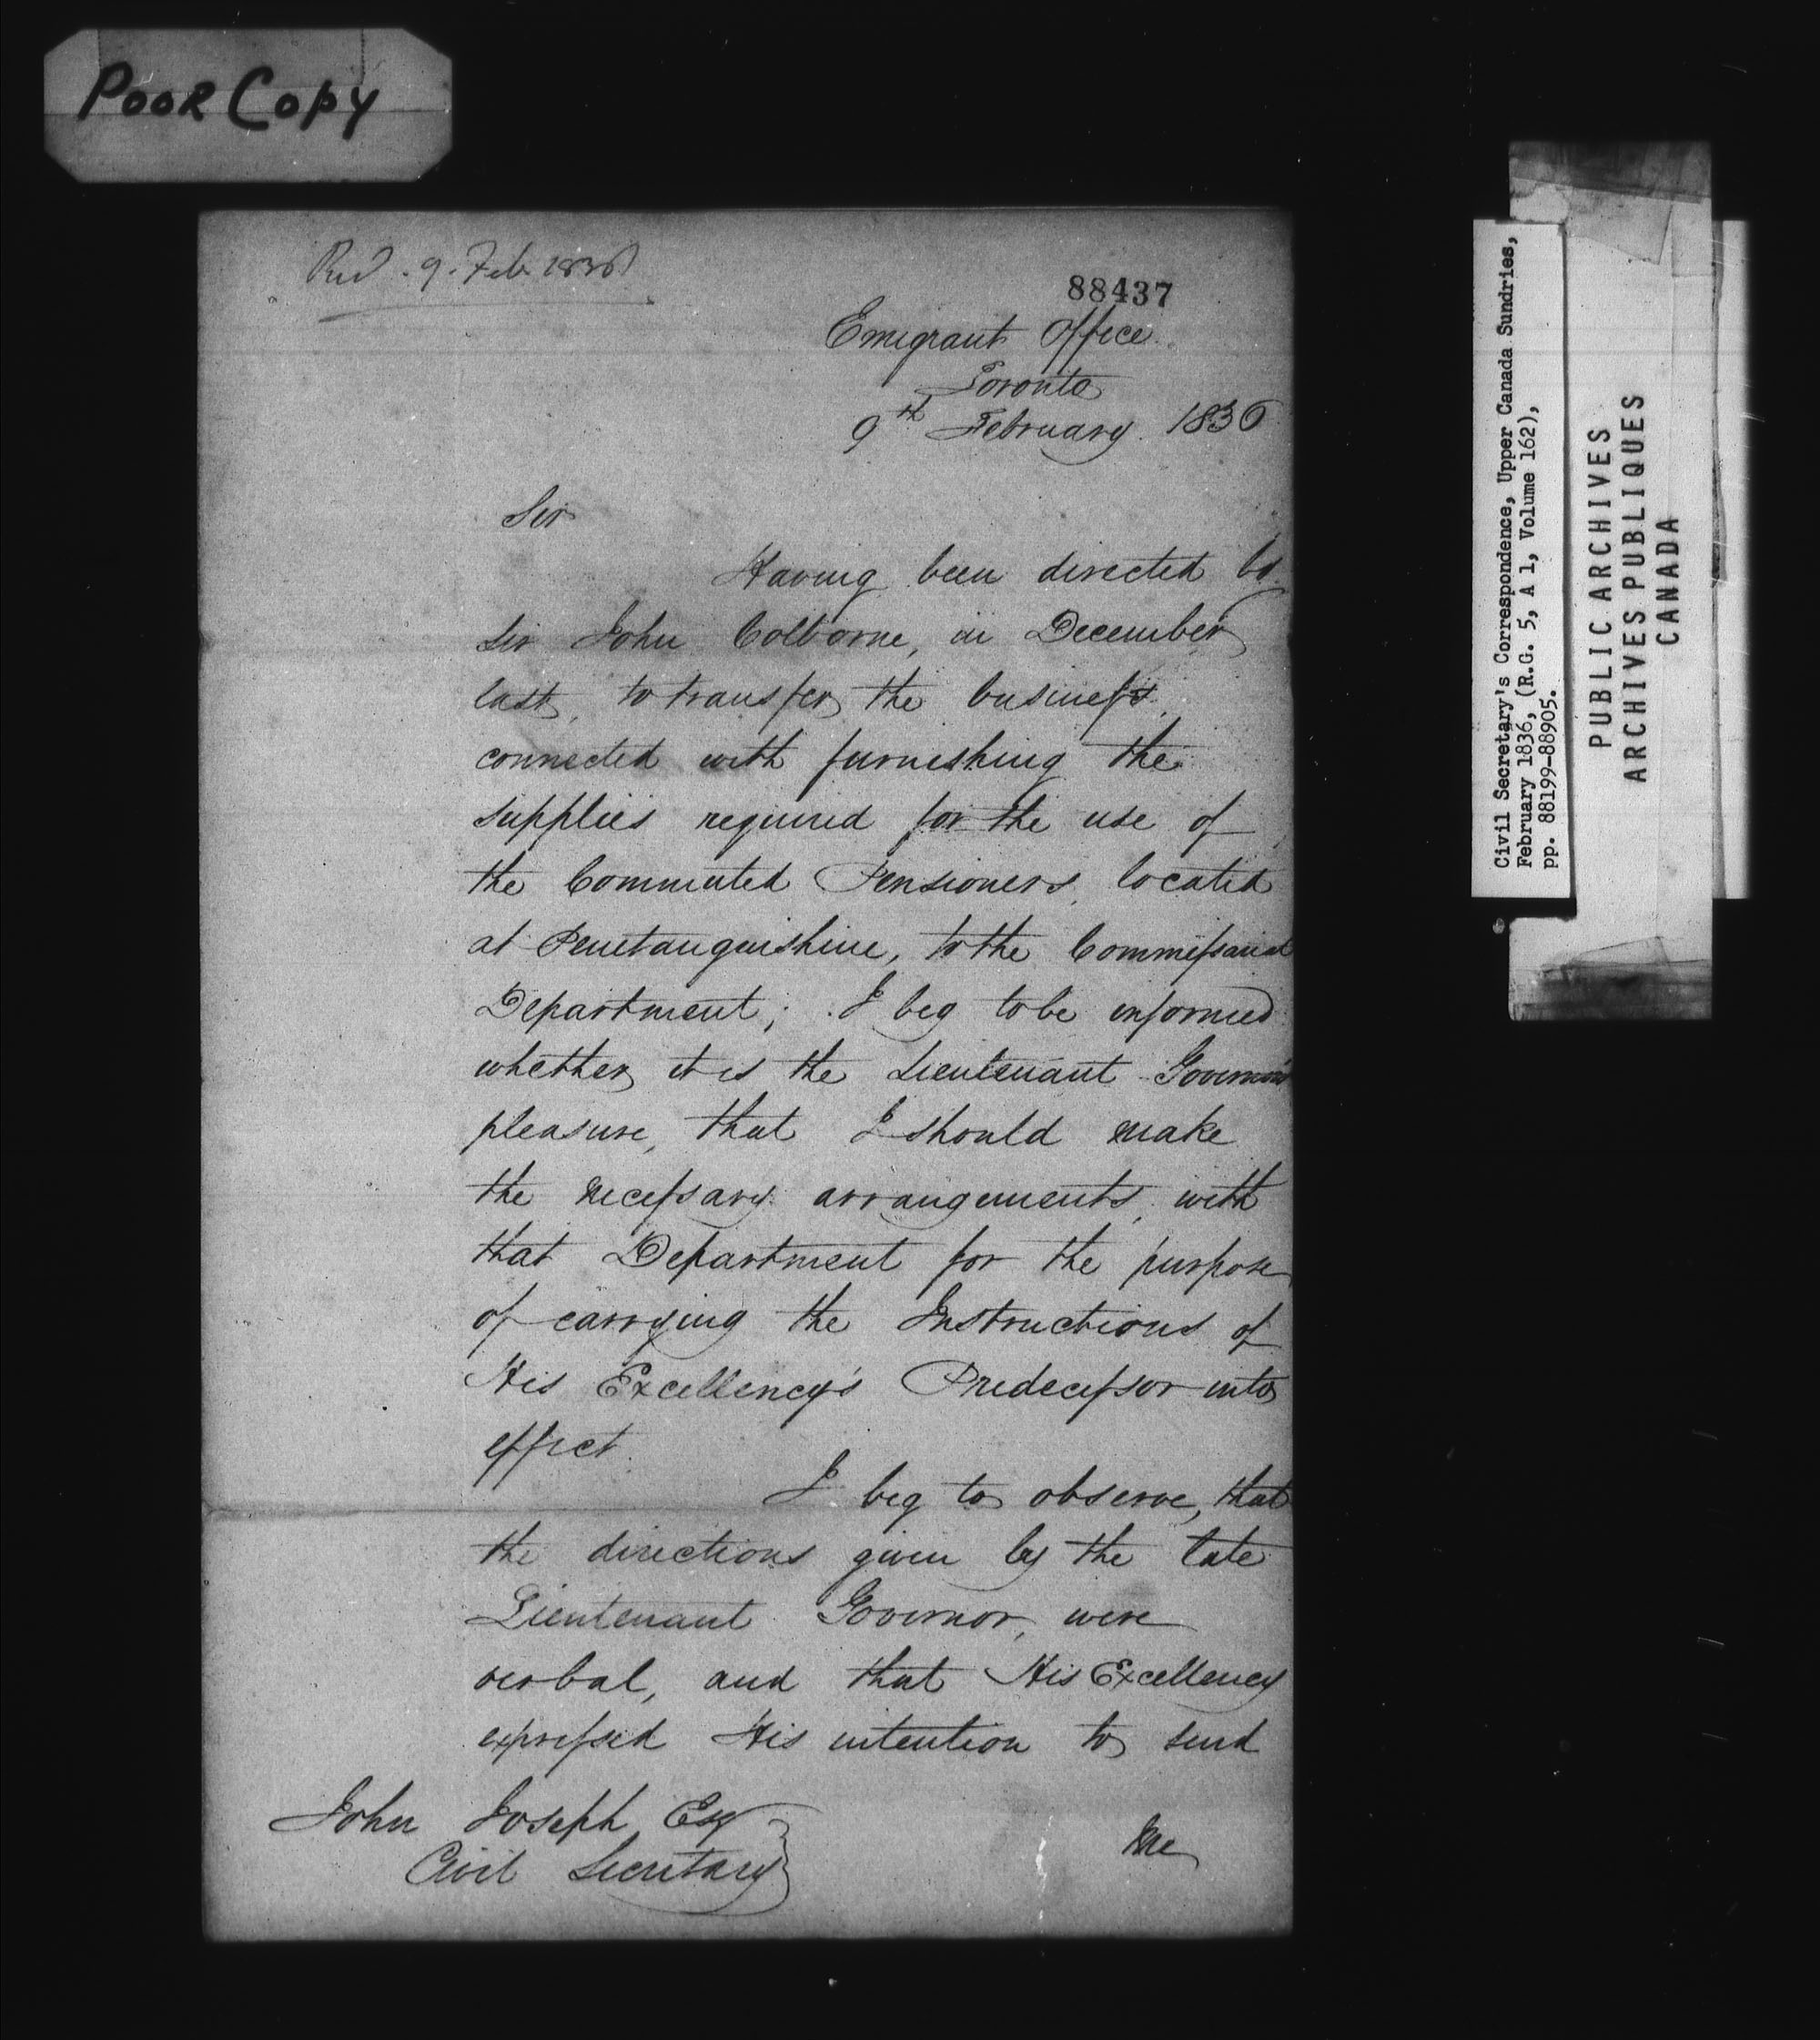 Poor Copy
Recd. 9. Feb. 1836
88437
Emigrant Office
Toronto
9th February. 1836
Sir
Having been directed by
Sir John Colborne, in December
last, to transfer the business
connected with furnishing the
supplies required for the use of
the Commuted Pensioners, located
at Penetanguishine, to the Commissariat
Department; I beg to be informed
whether it is the Lieutenant Governor's
pleasure, that I should make
the necessary arrangements, with
that Department for the purpose
of carrying the Instructions of
His Excellency's Predecessor into
effect.
I beg to observe, that
the directions given by the late
Lieutenant Governor, were
verbal, and that His Excellency
expressed His intention to send
John Joseph Esq
Civil Secretary
me
Civil Secretary's Correspondence, Upper Canada Sundries,
February 1836, (R.G. 5, A 1, Volume 162),
pp. 88199-88905.
PUBLIC ARCHIVES
ARCHIVES PUBLIQUES
CANADA